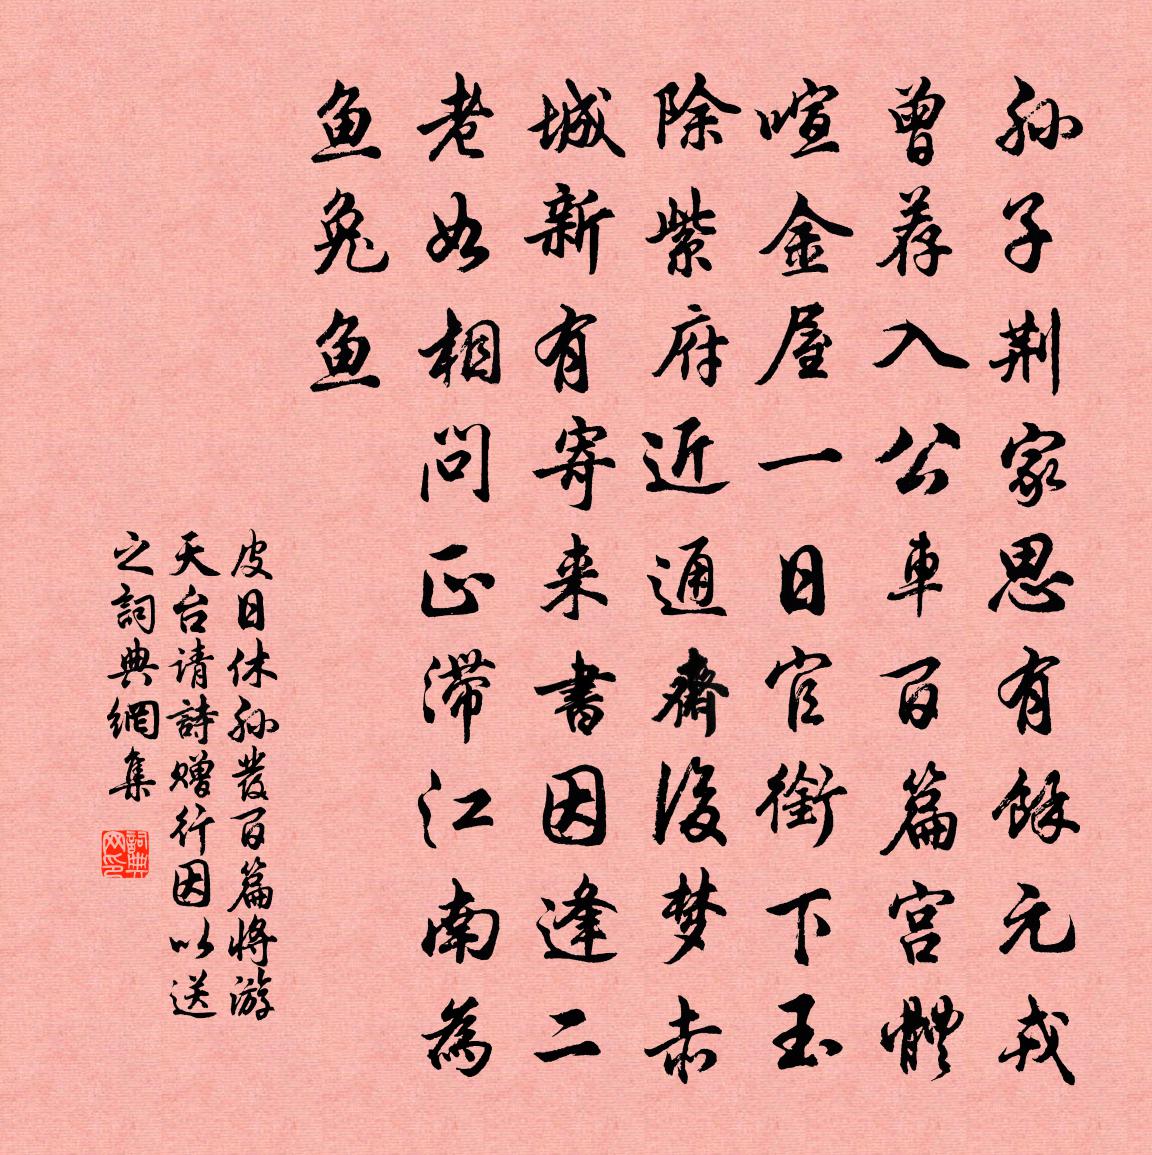 孙子荆家思有餘元戎
曾荐入公車百篇宫體
喧金屋一日官銜下玉
除紫府近通齋後梦赤
城新有寄来書因逢二
老如相問正滞江南為
鱼兔鱼
皮日休孙發百篇将游
天台请詩赠行因以送
之詞典網集
詞典
网印